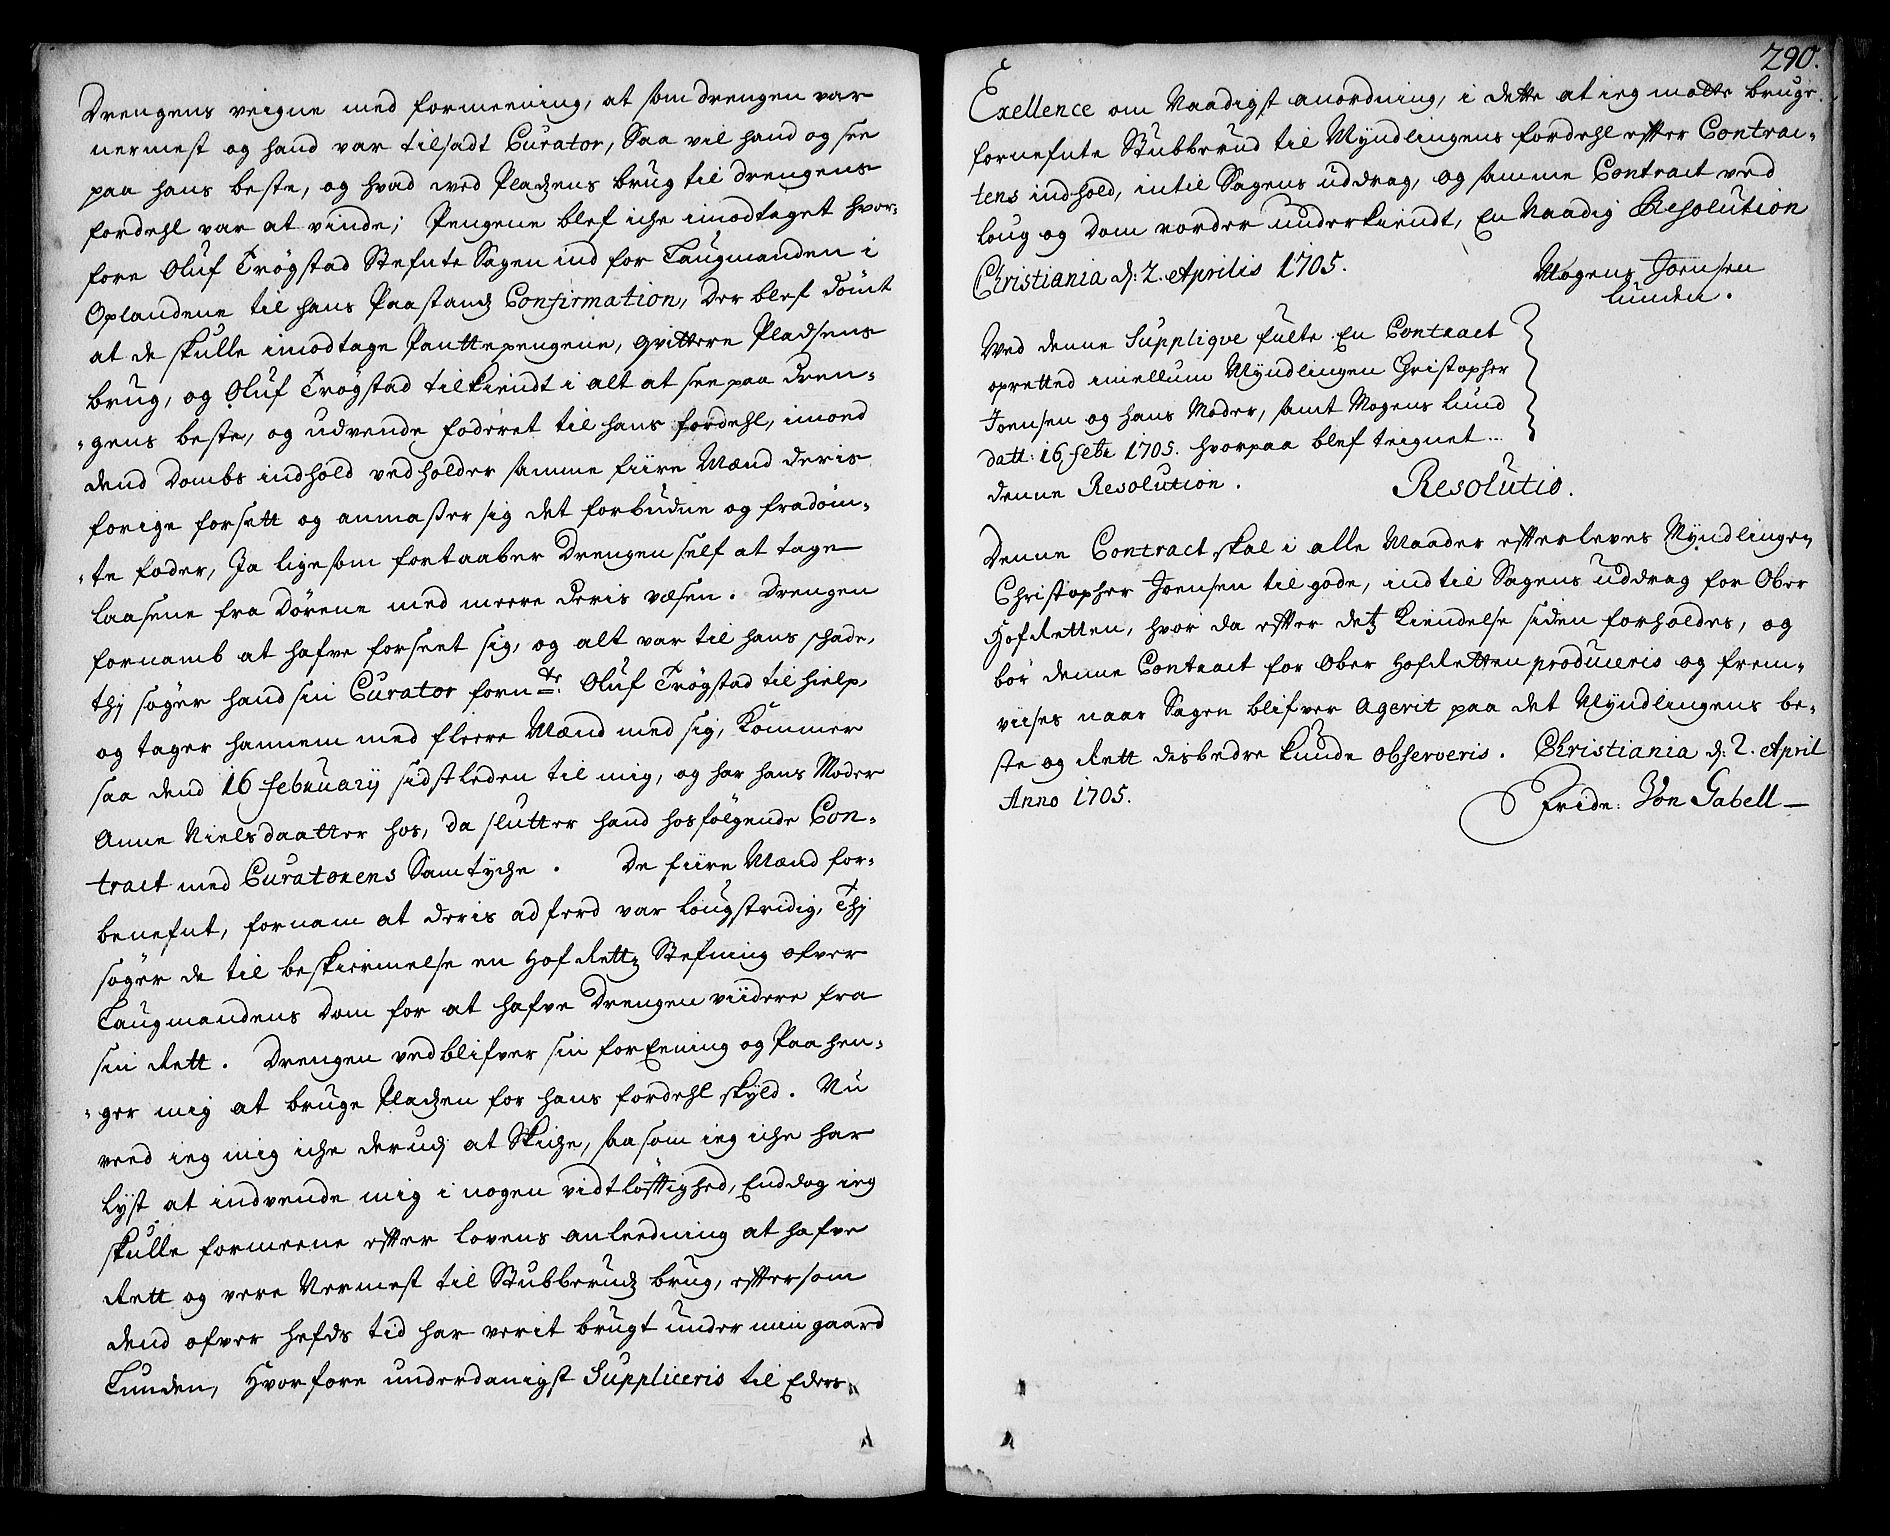 Drengens veigne med formeening, at som drengen var
nermest og hand var tilsadt Curator, Saa vil hand og see
paa hans beste, og hvad ved Pladzens brug til drengens
fordehl var at vinde; Pengene blef iche imodtaget hvor-
fore Oluf Trøgstad Stefnte Sagen ind for Laugmanden i
Oplandene til hans Paastands Confirmation, Der blef dömt
at de skulle imodtage Panttepengene, qvittere Pladsens
brug, og Oluf Trögstad tilkiendt i alt at see paa dren-
-gens beste, og udvende foderet til hans fordehl, imoed
dend Dombs indhold vedholder samme fiire Mænd deris
forige forsett og anmaßer sig det forbudne og fradöm-
-te foder, Ja ligesom fortaaber Drengen self at tage
laasene fra Dörene med meere deris væsen. Drengen
fornamb at hafve forseet sig, og alt var til hans schade,
thj söger hand sin Curator fornte: Oluf Trögstad til hielp,
og tager hannem med fleere Mænd med sig, Kommer
saa dend 16 februarij sidstleden til mig, og har hans Moder
Anne Nielsdaatter hos, da slutter hand hosfölgende Con-
tract med Curatorens Samtyche. De fiire Mænd for-
benefnt, fornam at deris adferd var lougstridig, Thj
söger de til beskiermelse en Hof Rettz Stefning ofver
Laugmandens Dom for at hafve Drengen viidere fra
sin Rett. Drengen vedblifver sin forEening og Paahen-
-ger mig at bruge Pladzen for hans fordehl skyld. Nu
veed ieg mig iche derudj at Skiche, saasom ieg iche har
lyst at indvende mig i nogen vidtlöfftighed, Enddog ieg
skulle formeene efter lovens anleedning at hafve
Rett og vere Nermest til Stubberudz brug, eftersom
dend ofver hefds tid har verit brugt under min gaard
Lunden, Hvorfore underdanigst Supliceris til Eders
290.
Exellence om Naadigst anordning, i dette at ieg motte bruge
fornefnte Stubberud til Myndlingens fordehl efter Contrac-
tens indhold, intil Sagens uddrag, og samme Contract ved
loug og Dom vorder underkiendt, En Naadig Resolution
Christiania d: 2. Aprilis 1705.
Mogens Joensen
Lunden.
Ved denne Supplique fulte En Contract
opretted imellum Myndlingen Christopher
Joensen og hans Moder, samt Mogens Lund
datt: 16 febr 1705. hvorpaa blef teignet
denne Resolution.
Resolutio.
Denne Contract skal i alle Maader efterleves Myndlingen
Christopher Joensen til gode, indtil Sagens uddrag for Ober
HofRetten, hvor da efter detz Kiendelse siden forholdes, og
bör denne Contract for Ober HofRetten produceris og frem-
viises naar Sagen blifver Agerit paa det Myndlingens be-
ste og Rett disbedre kunde observeris. Christiania d: 2. April
Anno 1705.
Fride: Von Gabell